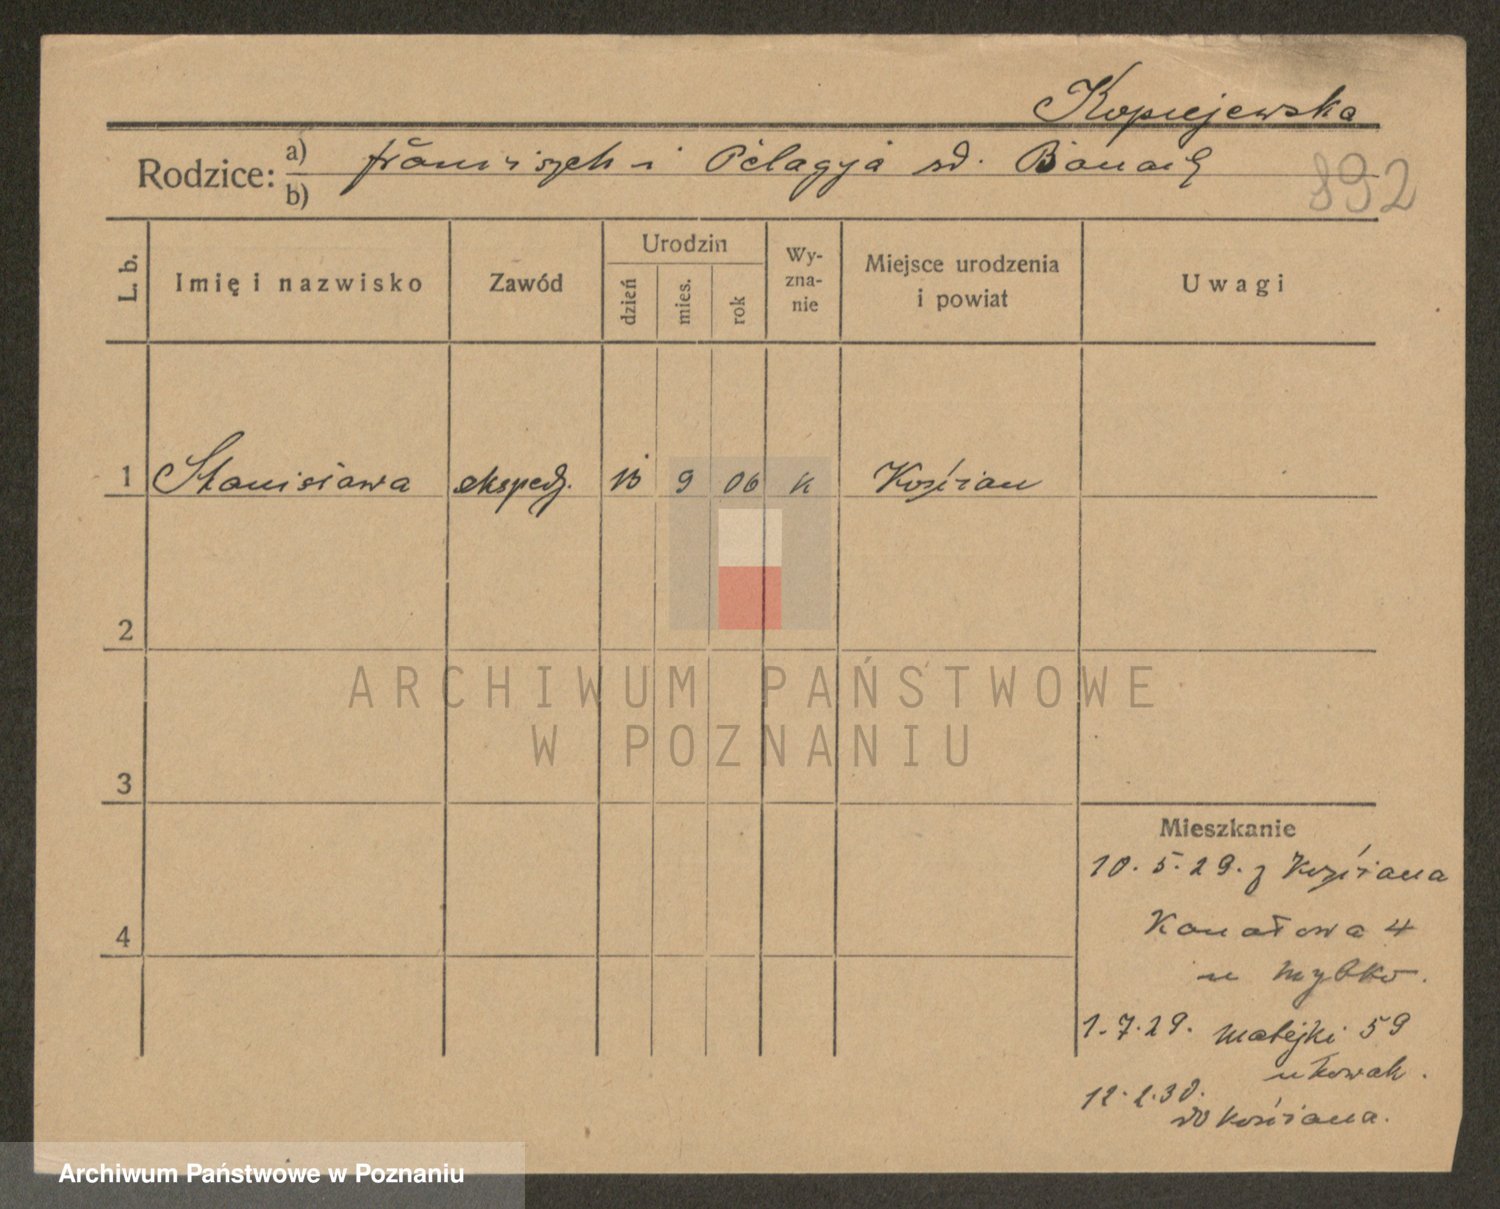 Kopiejewska
Rodzice: a) Franciszek i Pelagja sd. Banach
b)
892
L. b.
Imię i nazwisko
Zawód
Urodzin
dzień
mies.
rok
Wy-
zna-
nie
Miejsce urodzenia
i powiat
Uwagi
1 Stanisława ekspedj. 9 06 k Kościan
2
3
4
ARCHIWUM PAŃSTWOWE
W POZNANIU
Mieszkanie
10.5.29. z Kościana
Kanałowa 4
u
1.7.29. Matejki 59
u Kowak.
12.2.30.
do Kościana.
Archiwum Państwowe w Poznaniu